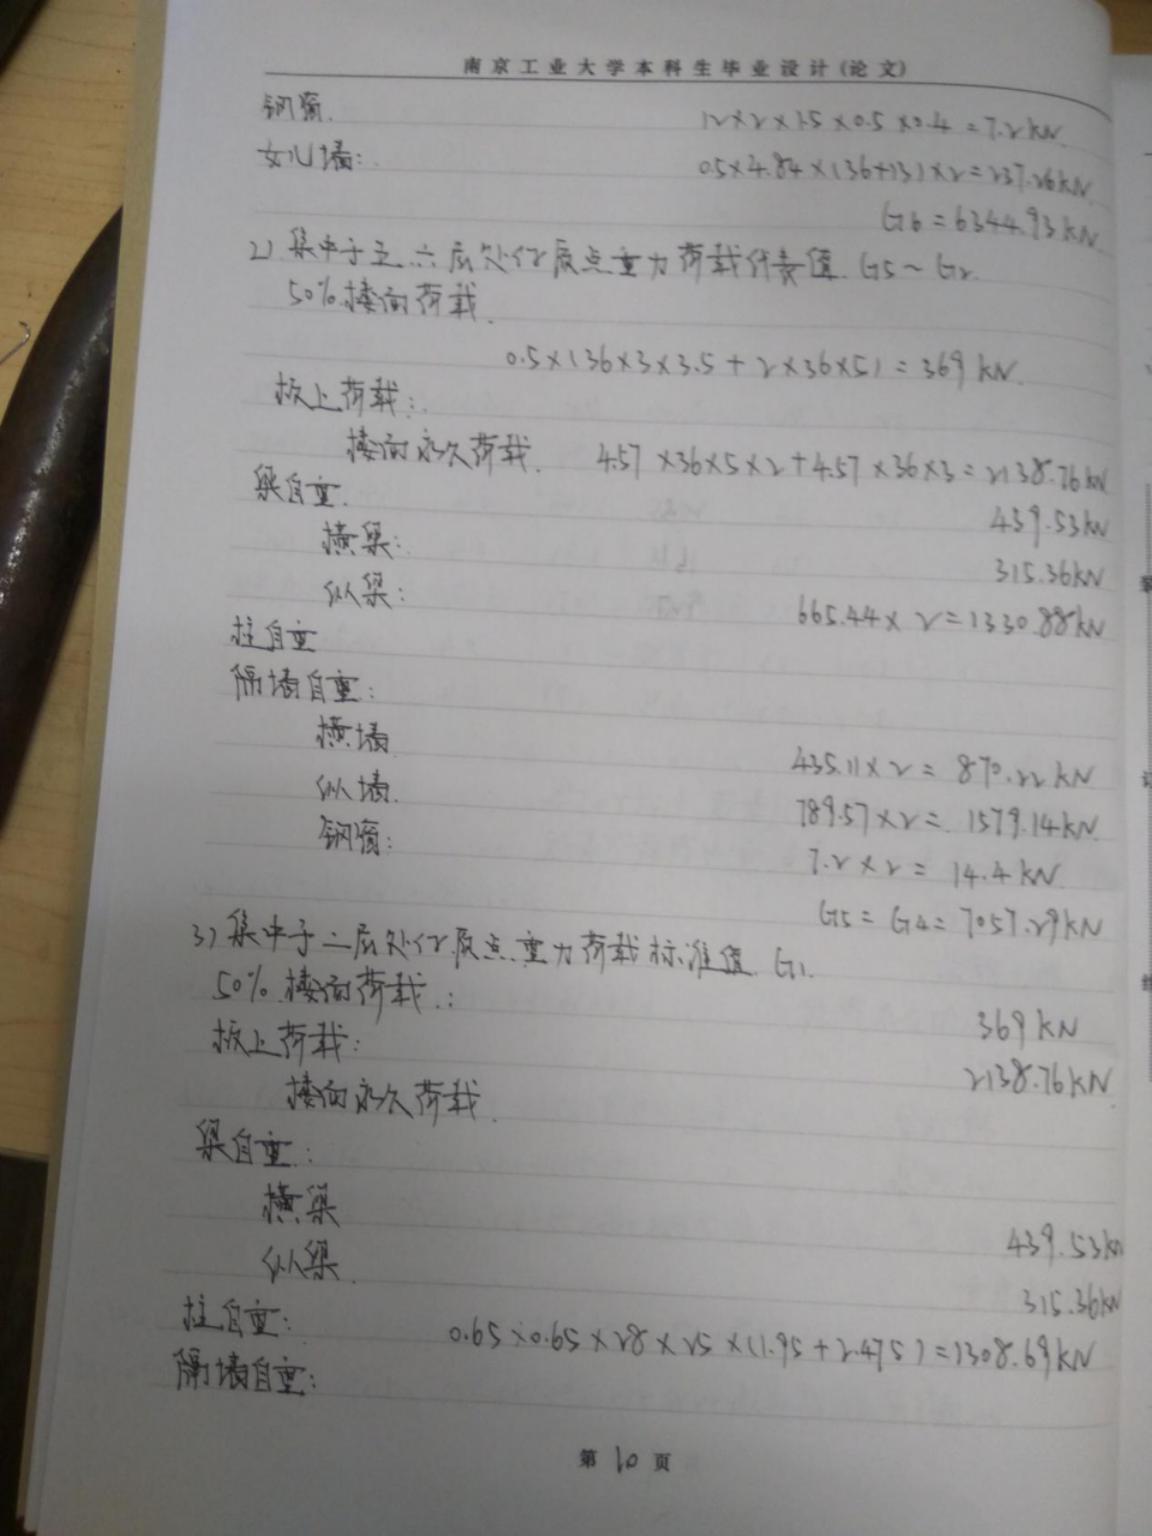 南京工业大学本科生毕业设计(论文)
钢窗. 12×2×1.5×0.5×0.4=7.2kN.
女儿墙: 0.5×4.84×(36+13)×2=237.26kN.
G6=6344.93kN.
2) 集中于三、六层处的质点重力荷载代表值. G5~G2.
50%楼面荷载.
0.5×(36×3×3.5+2×36×5)=369kN.
板上荷载:
楼面永久荷载. 4.57×36×5×2+4.57×36×3=2138.76kN
梁自重.
横梁: 439.53kN
纵梁: 315.36kN
柱自重 665.44×2=1330.88kN
隔墙自重:
横墙 435.11×2=870.22kN
纵墙. 789.57×2=1579.14kN
钢窗: 7.2×2=14.4kN.
G5=G4=7057.29kN
3) 集中于二层处的质点重力荷载标准值. G1.
50%楼面荷载: 369kN
板上荷载:
楼面永久荷载. 2138.76kN
梁自重:
横梁 439.53kN
纵梁. 315.36kN
柱自重: 0.65×0.65×28×25×(1.95+2.475)=1308.69kN
隔墙自重:
第10页